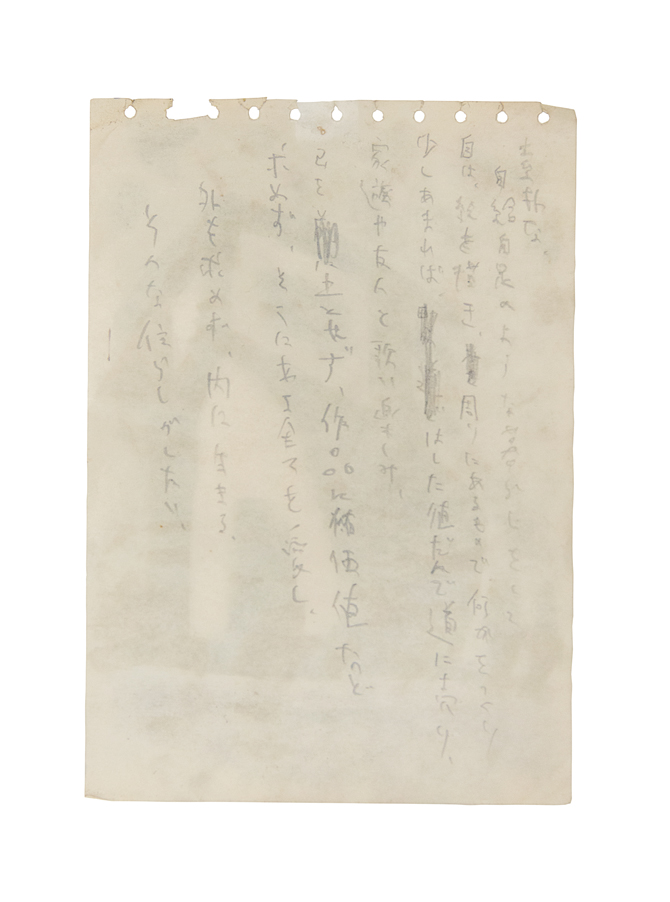 素朴な、
自給自足のような暮らしをして
自は、絵を描き、周りにあるもので、何かをつくり
少しあまれば はした値だんで道に売り、
家族や友人と歌い楽しみ、
己を 主とせず、作品に価値など
求めず、そこにある全てを愛し。
外も求めず、内に生きる。
そんな住らしがしたい、